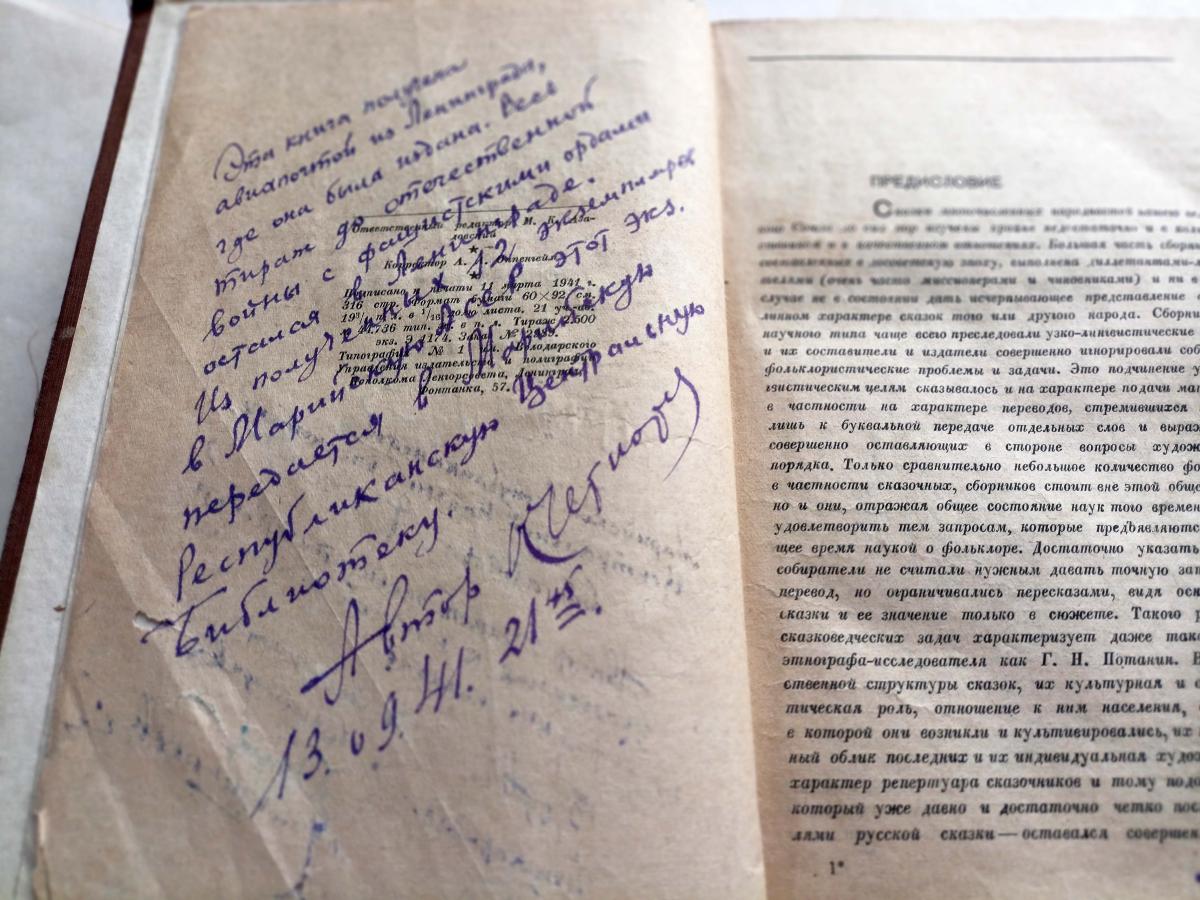 Эта книга получена
авиапочтой из Ленинграда,
где она была издана. Весь
тираж до отечественной
войны с фашистскими ордами
остался в Ленинграде.
Из полученных 12 экземпляров
в Марийскую АССР этот экз.
передается в Марийскую
Республиканскую Центральную
Библиотеку.
Автор
13.09.41. 21 45.
Ответственный редактор М. К. Аза-
довский
★
Корректор А. А.
★
Подписано к печати 11 марта 1941 г.
316 стр. Формат бумаги 60×92 см.
19¾ п. л. в 1/16 долю листа. 21 уч.-ав.
44.736 тип. зн. в п. л. Тираж 2.500
экз. Э 1174. Заказ №
Типография № 1 им. Володарского
Управления издательств и полиграфии
Исполкома Ленгорсовета, Ленинград,
Фонтанка, 57.
ПРЕДИСЛОВИЕ
Сказки
Большая часть сборн
выполнена дилетантами-л
(очень часто миссионерами и чиновниками) и ни в
случае не в состоянии дать исчерпывающее представление
линном характере сказок того или другого народа. Сборни
научного типа чаще всего преследовали узко-лингвистические
и их составители и издатели совершенно игнорировали соб
фольклористические проблемы и задачи. Это подчинение у
гвистическим целям сказывалось и на характере подачи мат
в частности на характере переводов, стремившихся
лишь к буквальной передаче отдельных слов и выраж
совершенно оставляющих в стороне вопросы худож
порядка. Только сравнительно небольшое количество фо
в частности сказочных, сборников стоит вне этой обще
но и они, отражая общее состояние наук того времен
удовлетворить тем запросам, которые предъявляются
щее время наукой о фольклоре. Достаточно указать
собиратели не считали нужным давать точную зап
перевод, но ограничивались пересказами, видя осн
сказки и ее значение только в сюжете. Такого р
сказковедческих задач характеризует даже тако
этнографа-исследователя как Г. Н. Потанин. В
ственной структуры сказок, их культурная и
тическая роль, отношение к ним населения,
в которой они возникли и культивировались, их
ный облик последних и их индивидуальная худож
характер репертуара сказочников и тому подо
который уже давно и достаточно четко пос
лями русской сказки — оставался совершен
1*